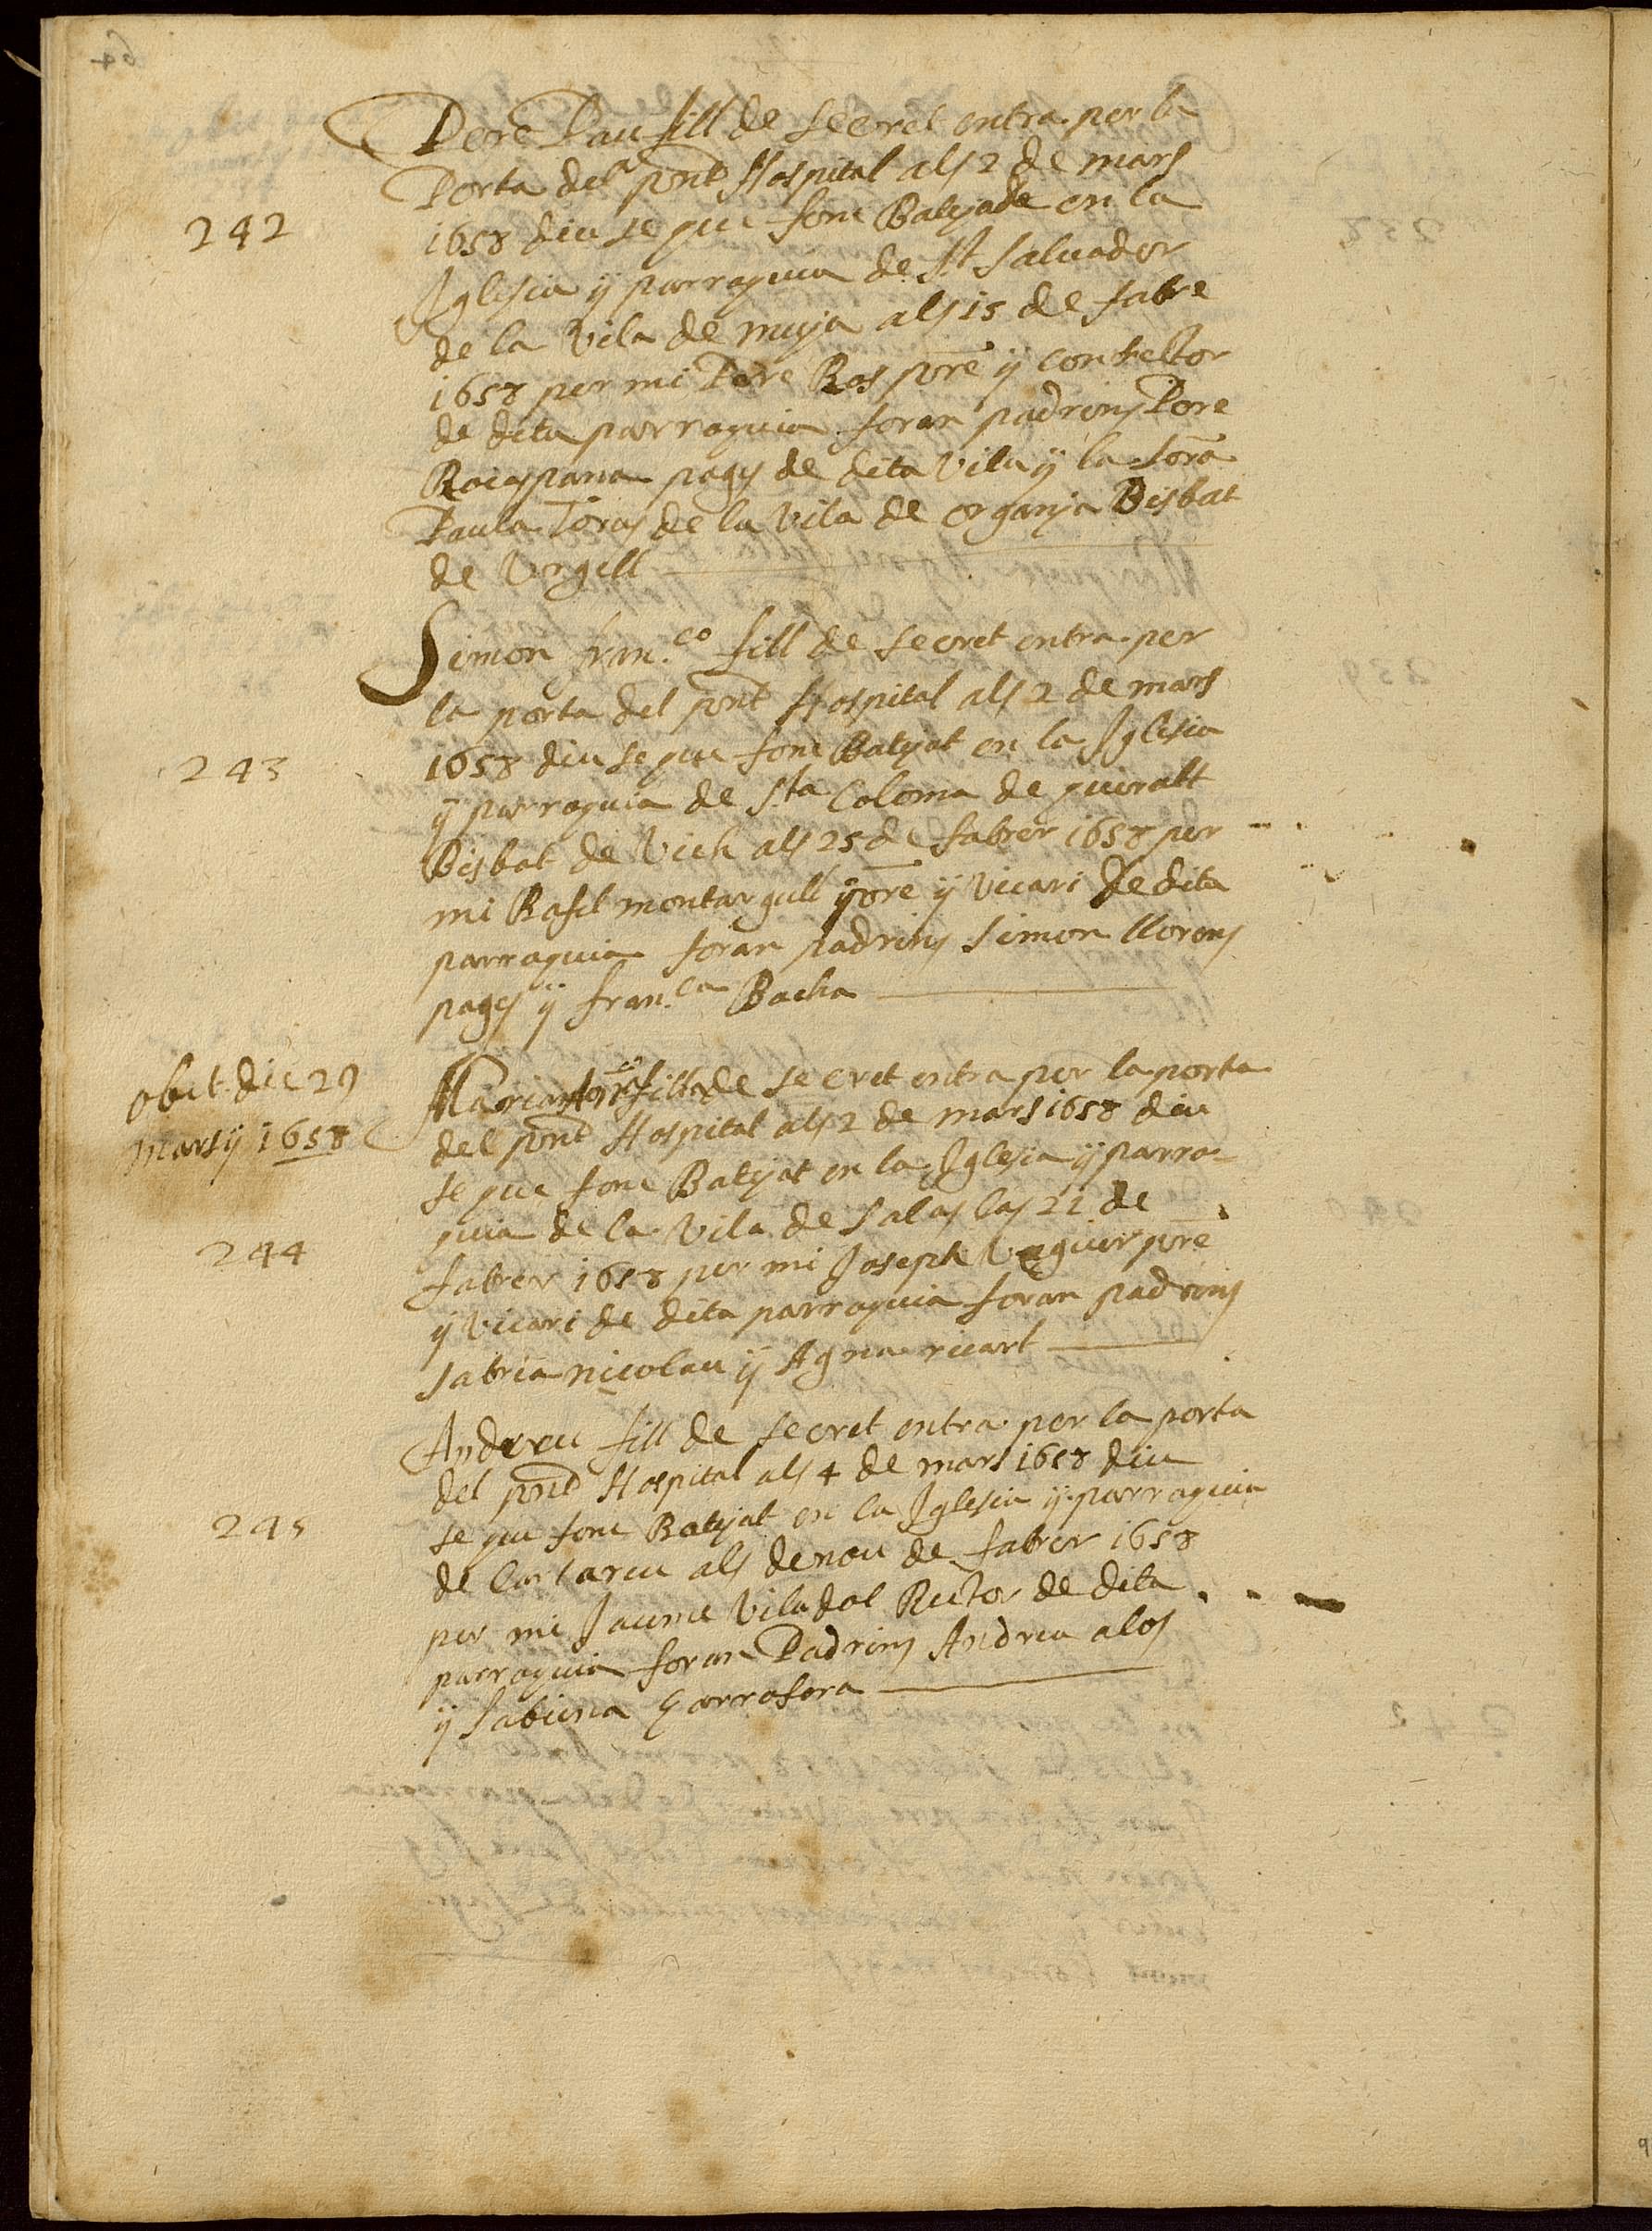 Pere Pau fill de secret entra per la
Porta del pnt Hospital als 2 de mars
242
1658 diu se que fonc Batejade en la
Iglesia ÿ parroquia de St Salvador
de la vila de muja als 15 de fabre
1658 per mi Pere Ros pre ÿ confestor
de dita parroquia foran padrins Pere
Raiaspana pages de dita vila ÿ la sora
Paula Toras de la vila de organja Bisbat
de Vrgell
Simon fran.co fill de secret entra per
la porta del pnt Hospital als 2 de mars
243
1658 diu se que fonc Batejat en la Iglesia
ÿ parroquia de Sta Coloma de queralt
Bisbat de Vich als 25 de fabrer 1658 per
mi Rafel montargull pre ÿ vicari de dita
parroquia foran padrins Simon llorens
pages ÿ fran.ca Bacha
obit die 29
marsÿ 1658
Maria filla de secret entra per la porta
del pnt Hospital als 2 de mars 1658 diu
se que fonc Batejat en la Iglesia ÿ parro-
quia de la vila de salas las 21 de
244
fabrer 1658 per mi Joseph Veguer pre
ÿ vicari de dita parroquia foran padrins
sabria nicolau ÿ Agna ricart
Andreu fill de secret entra per la porta
del pnt Hospital als 4 de mars 1658 diu
245
se que fonc Batejat en la Iglesia ÿ parroquia
de als denou de fabrer 1658
per mi Jaume Viladot Rector de dita
parroquia foran Padrins Andreu alos
ÿ Sabiina Garrofera